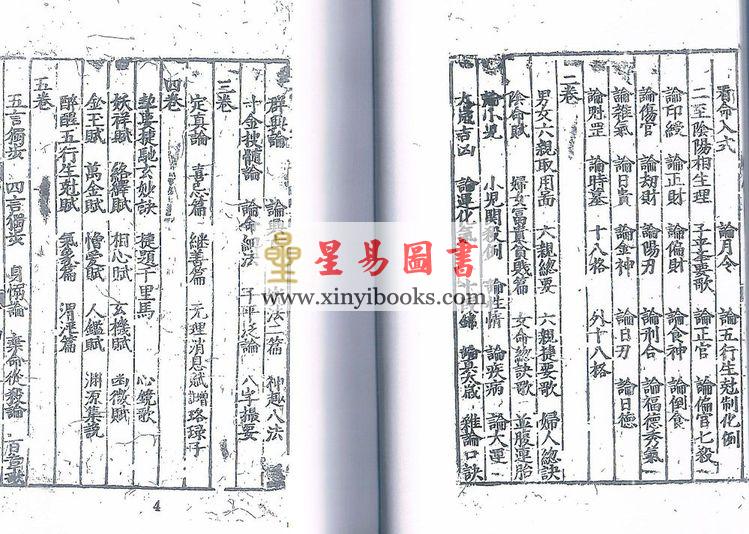 看命入式 論月令 論五行生尅制化例
二至陰陽相生理 子平要歌 論正官 論偏官七殺
論印綬 論正財 論偏財 論食神 論倒食
論傷官 論劫財 論陽刃 論刑合 論福德秀氣
論雜氣 論日貴 論金神 論日刃 論日德
論時墓 十八格 外十八格
二卷
男女六親取用 六親總要 六親捷要歌 婦人總訣
陰命賦 婦女富貴貧賤篇 女命總訣歌 並腹運胎
論小兒 小兒關殺例 論性情 論疾病 論大運
太歲吉凶 論運化氣 雜論口訣
群興論 論興 法二篇 神趣八法
寸金搜髓論 論命細法 子平泛論 八字撮要
三卷
定真論 喜忌篇 繼善篇 元理消息賦 珞琭子
四卷
捷馳玄妙訣 捷頭千里馬 心鏡歌
妖祥賦 絡繹賦 相心賦 玄機賦 幽微賦
金玉賦 萬金賦 憎愛賦 人鑑賦 淵源集說
醉醒五行生尅賦 氣象篇 渭涇篇
五卷
五言獨步 四言獨步 身弱論 棄命從殺論
4
星易圖書
www.xinyibooks.com